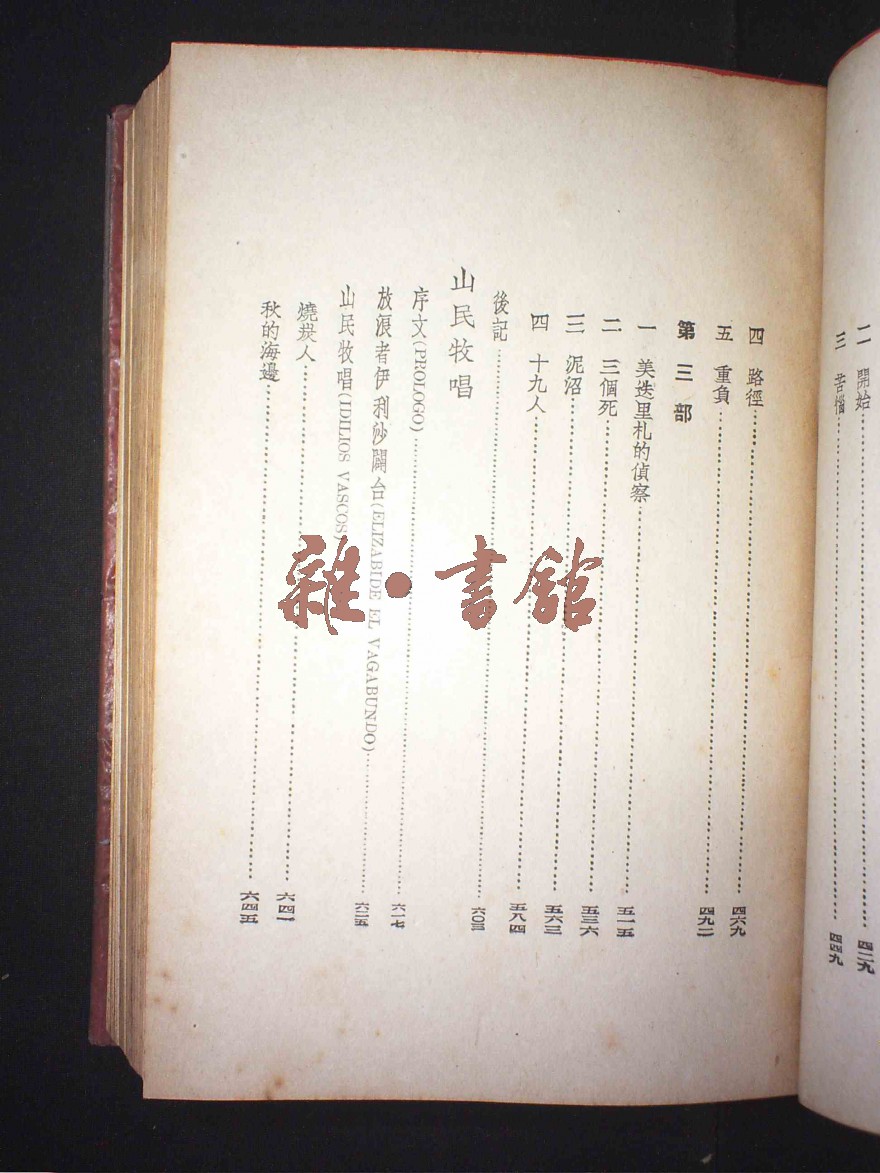 二　開始……四二九
三　苦惱……四四九
四　路徑……四六九
五　重負……四九二
第三部
一　美迭里札的偵察……五一五
二　三個死……五三六
三　泥沼……五六三
四　十九人……五八四
後記……六〇三
山民牧唱
序文(PROLOGO)……六一七
放浪者伊利沙闢台(ELIZABIDE EL VAGABUNDO)……六二五
山民牧唱(IDILIOS VASCOS
燒炭人……六四一
秋的海邊……六四五
雜·書館